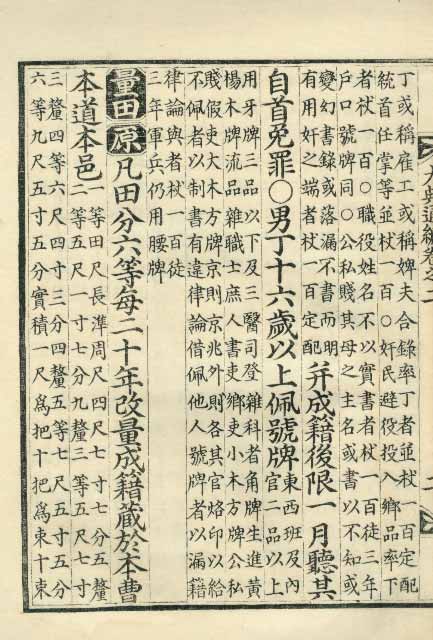 大典通編卷之二
丁或稱雇工或稱婢夫合錄率丁者並杖一百定配
統首任掌等並杖一百○奸民避役投入鄕品率下
者杖一百○職役姓名不以實書者杖一百徒三年
戶口號牌同○公私賤其母之主名或書以不知或
變幻書錄或落漏不書而明
有用奸之端者杖一百定配
幷成籍後限一月聽其
自首免罪○男丁十六歲以上佩號牌
東西班及內
官二品以上
用牙牌三品以下及三醫司登雜科者角牌生進黃
楊木牌流品雜職士庶人書吏鄕吏小木方牌公私
賤假吏大木方牌京則京兆外則各其官烙印以給
不佩者以制書有違律論借佩他人號牌者以漏籍
律論與者杖一百徒
三年軍兵仍用腰牌
量田 原 凡田分六等每二十年改量成籍藏於本曹
本道本邑
一等田尺長準周尺四尺七寸七分五釐
二等五尺一寸七分九釐三等五尺七寸
三釐四等六尺四寸三分四釐五等七尺五寸五分
六等九尺五寸五分實積一尺爲把十把爲束十束